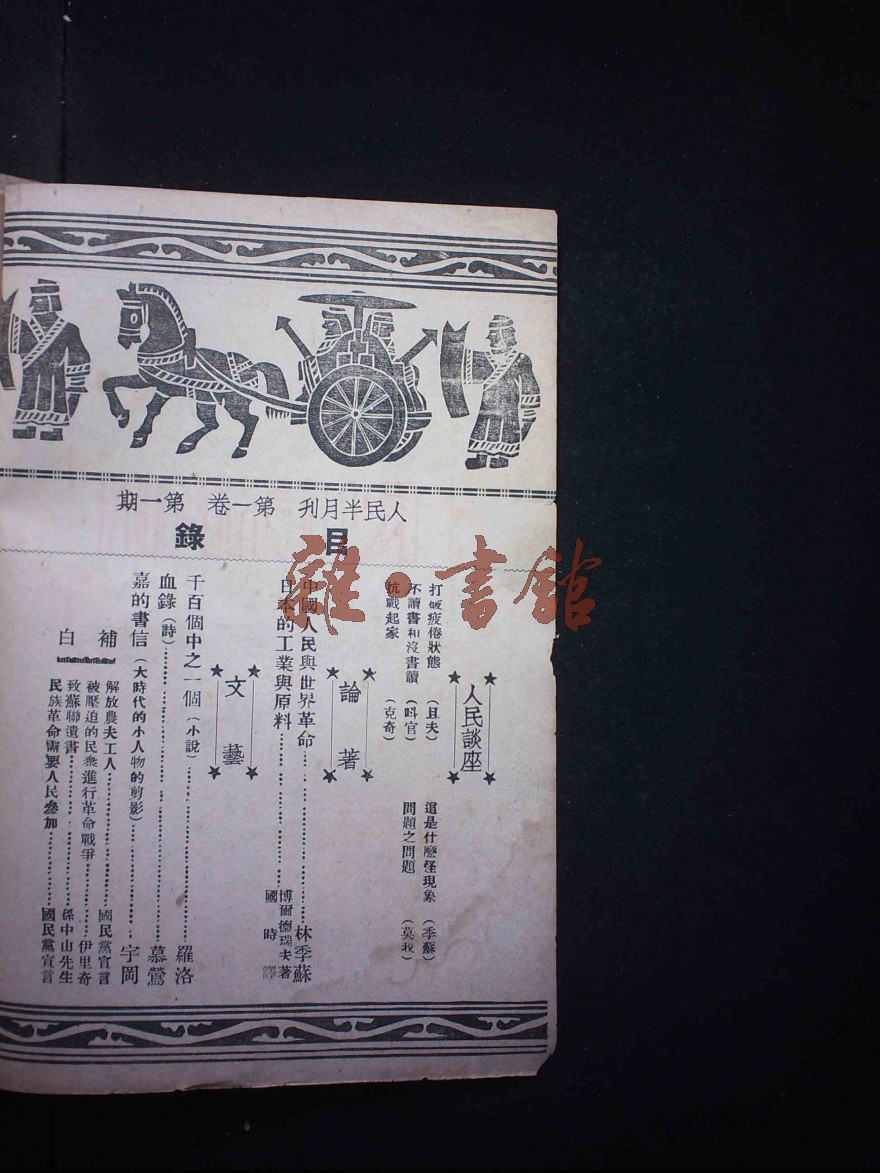 人民半月刊 第一卷 第一期
目錄
雜·書館
人民談座
打破疲倦狀態 (且夫)
這是什麼怪現象 (季蘇)
不讀書和沒書讀 (叫官)
問題之問題 (莫我)
抗戰起家 (克奇)
論著
中國人民與世界革命 林季蘇
日本的工業與原料 博爾德瑞夫著
國時譯
文藝
千百個中之一個 (小說) 羅洛
血錄 (詩) 慕鶯
嘉的書信 (大時代的小人物的剪影) 宇岡
補白
解放農夫工人 國民黨宣言
被壓迫的民衆進行革命戰爭 伊里奇
致蘇聯遺書 孫中山先生
民族革命需要人民參加 國民黨宣言